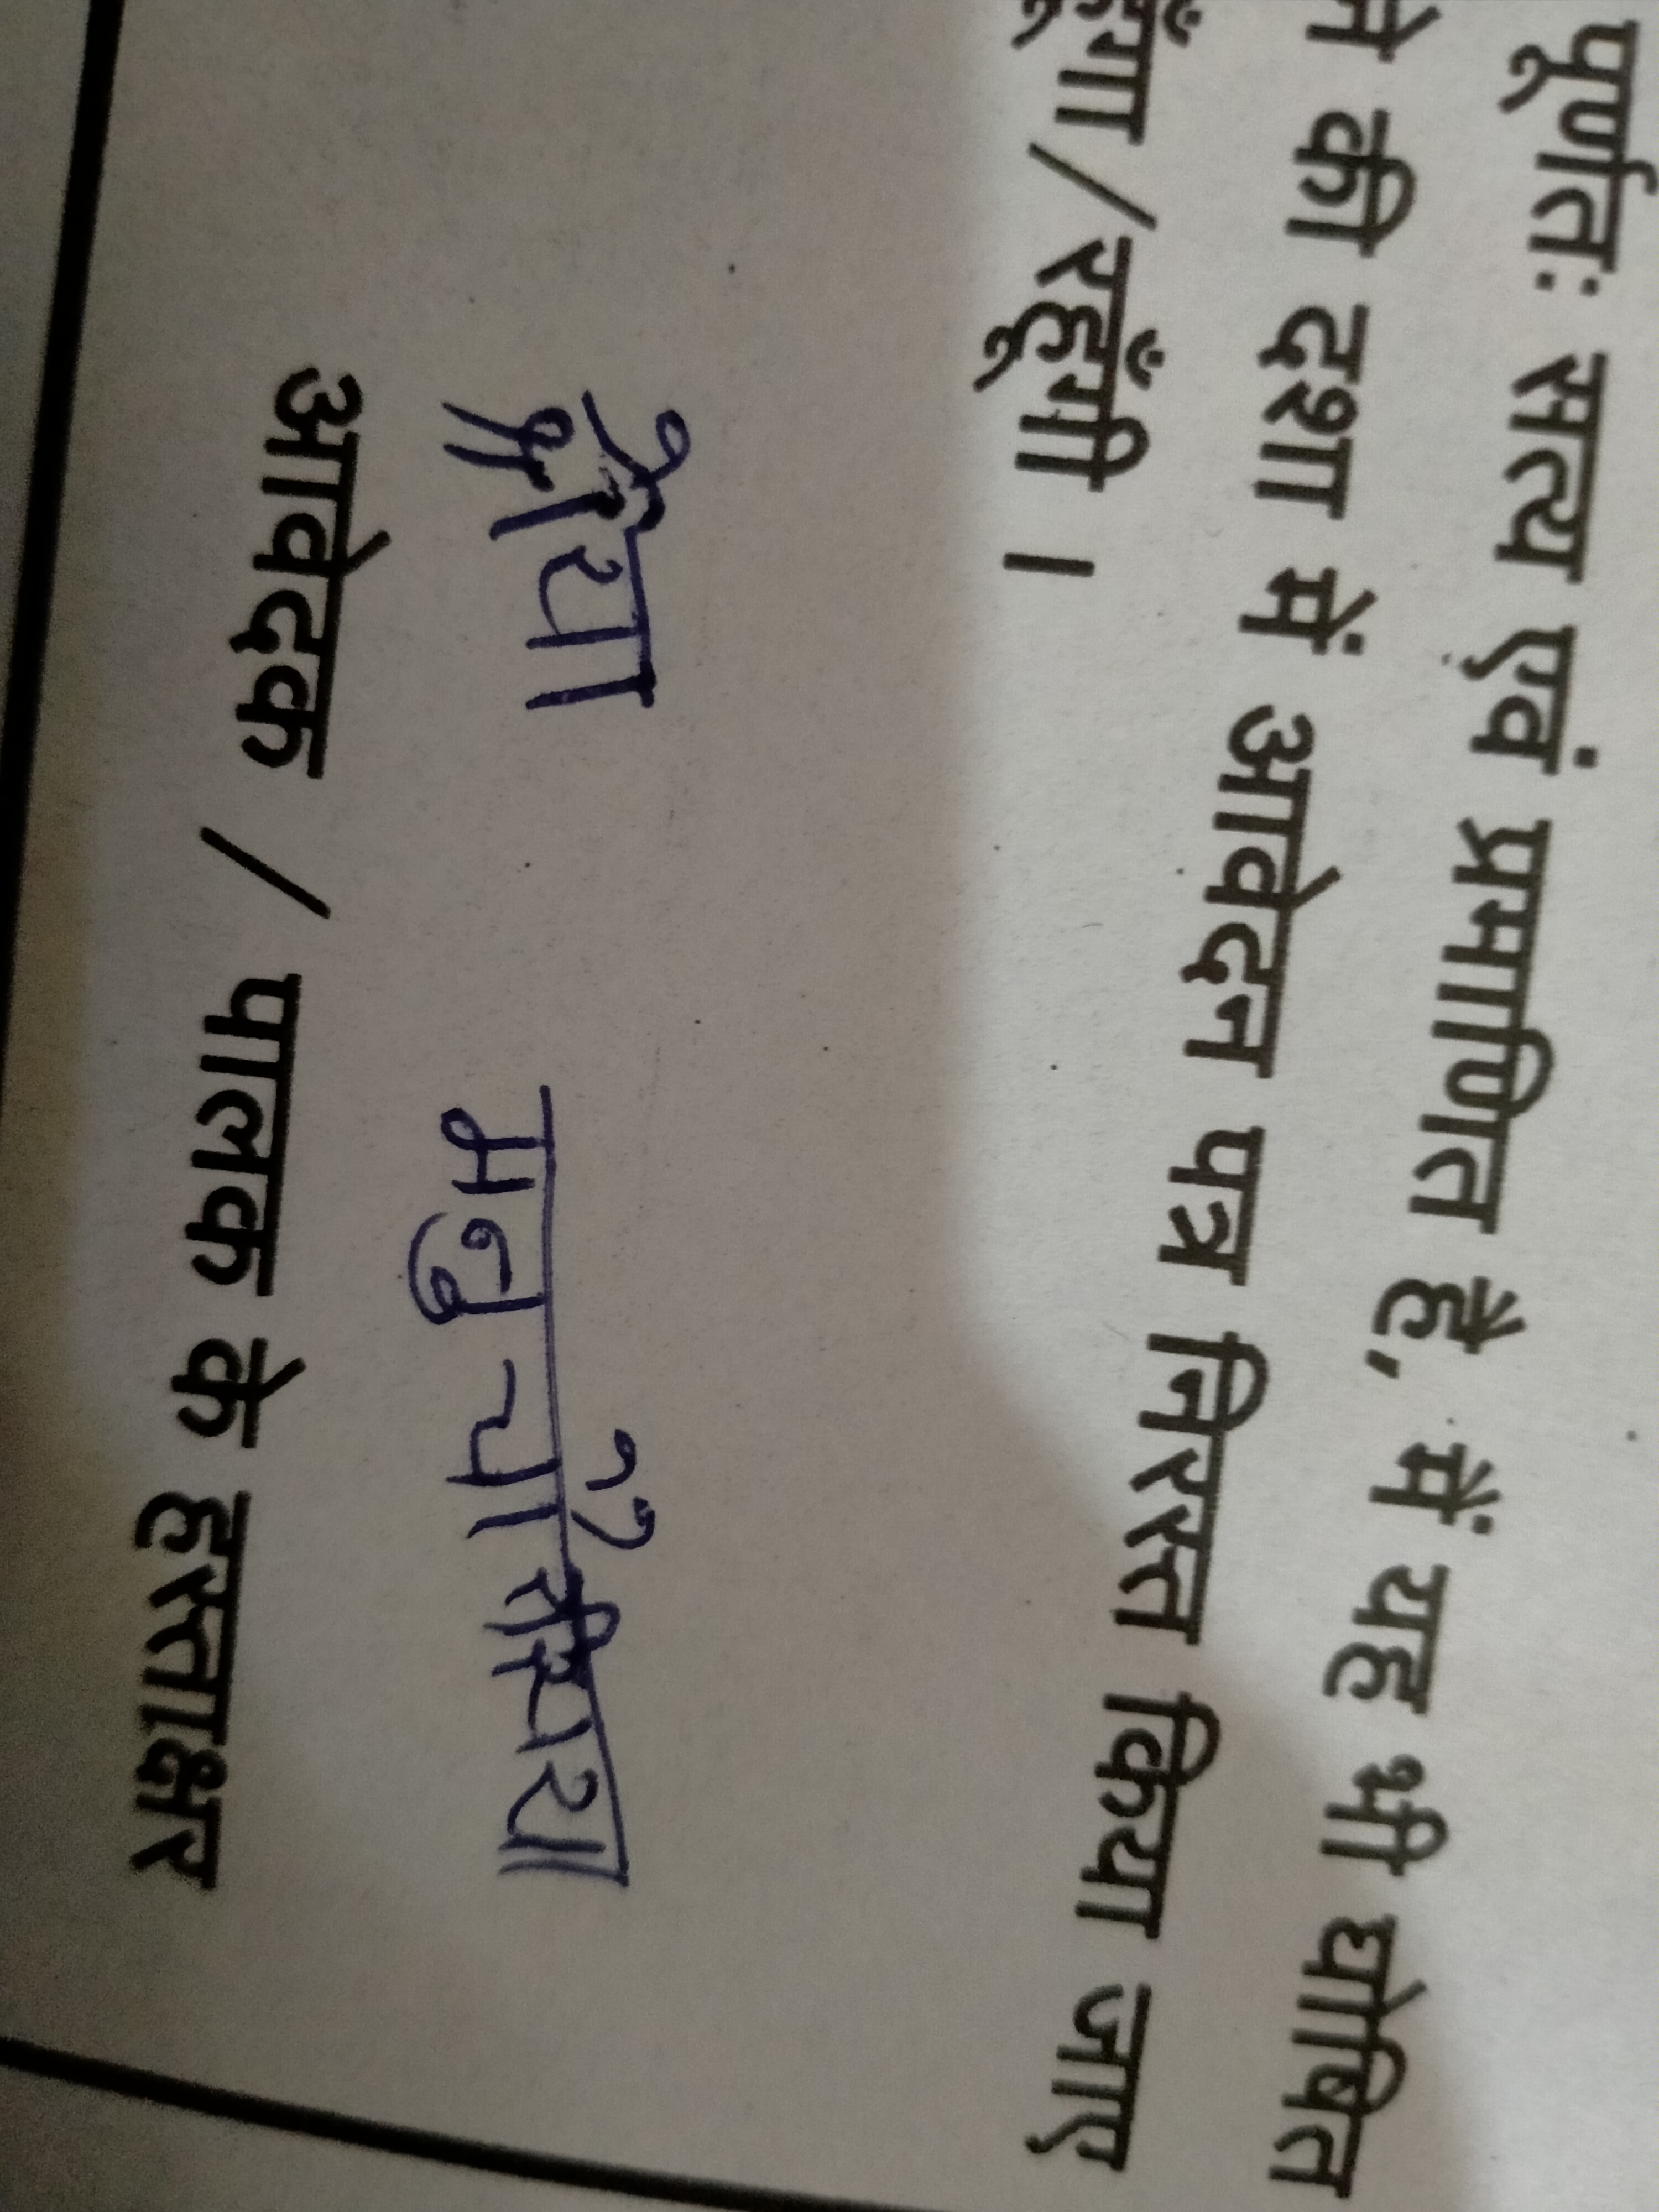 पूर्णतः सत्य एवं प्रमाणित है, मैं यह भी घोषित
ने की दशा में आवेदन पत्र निरस्त किया जाए
हूँगा/रहूँगी ।
आवेदक / पालक के हस्ताक्षर